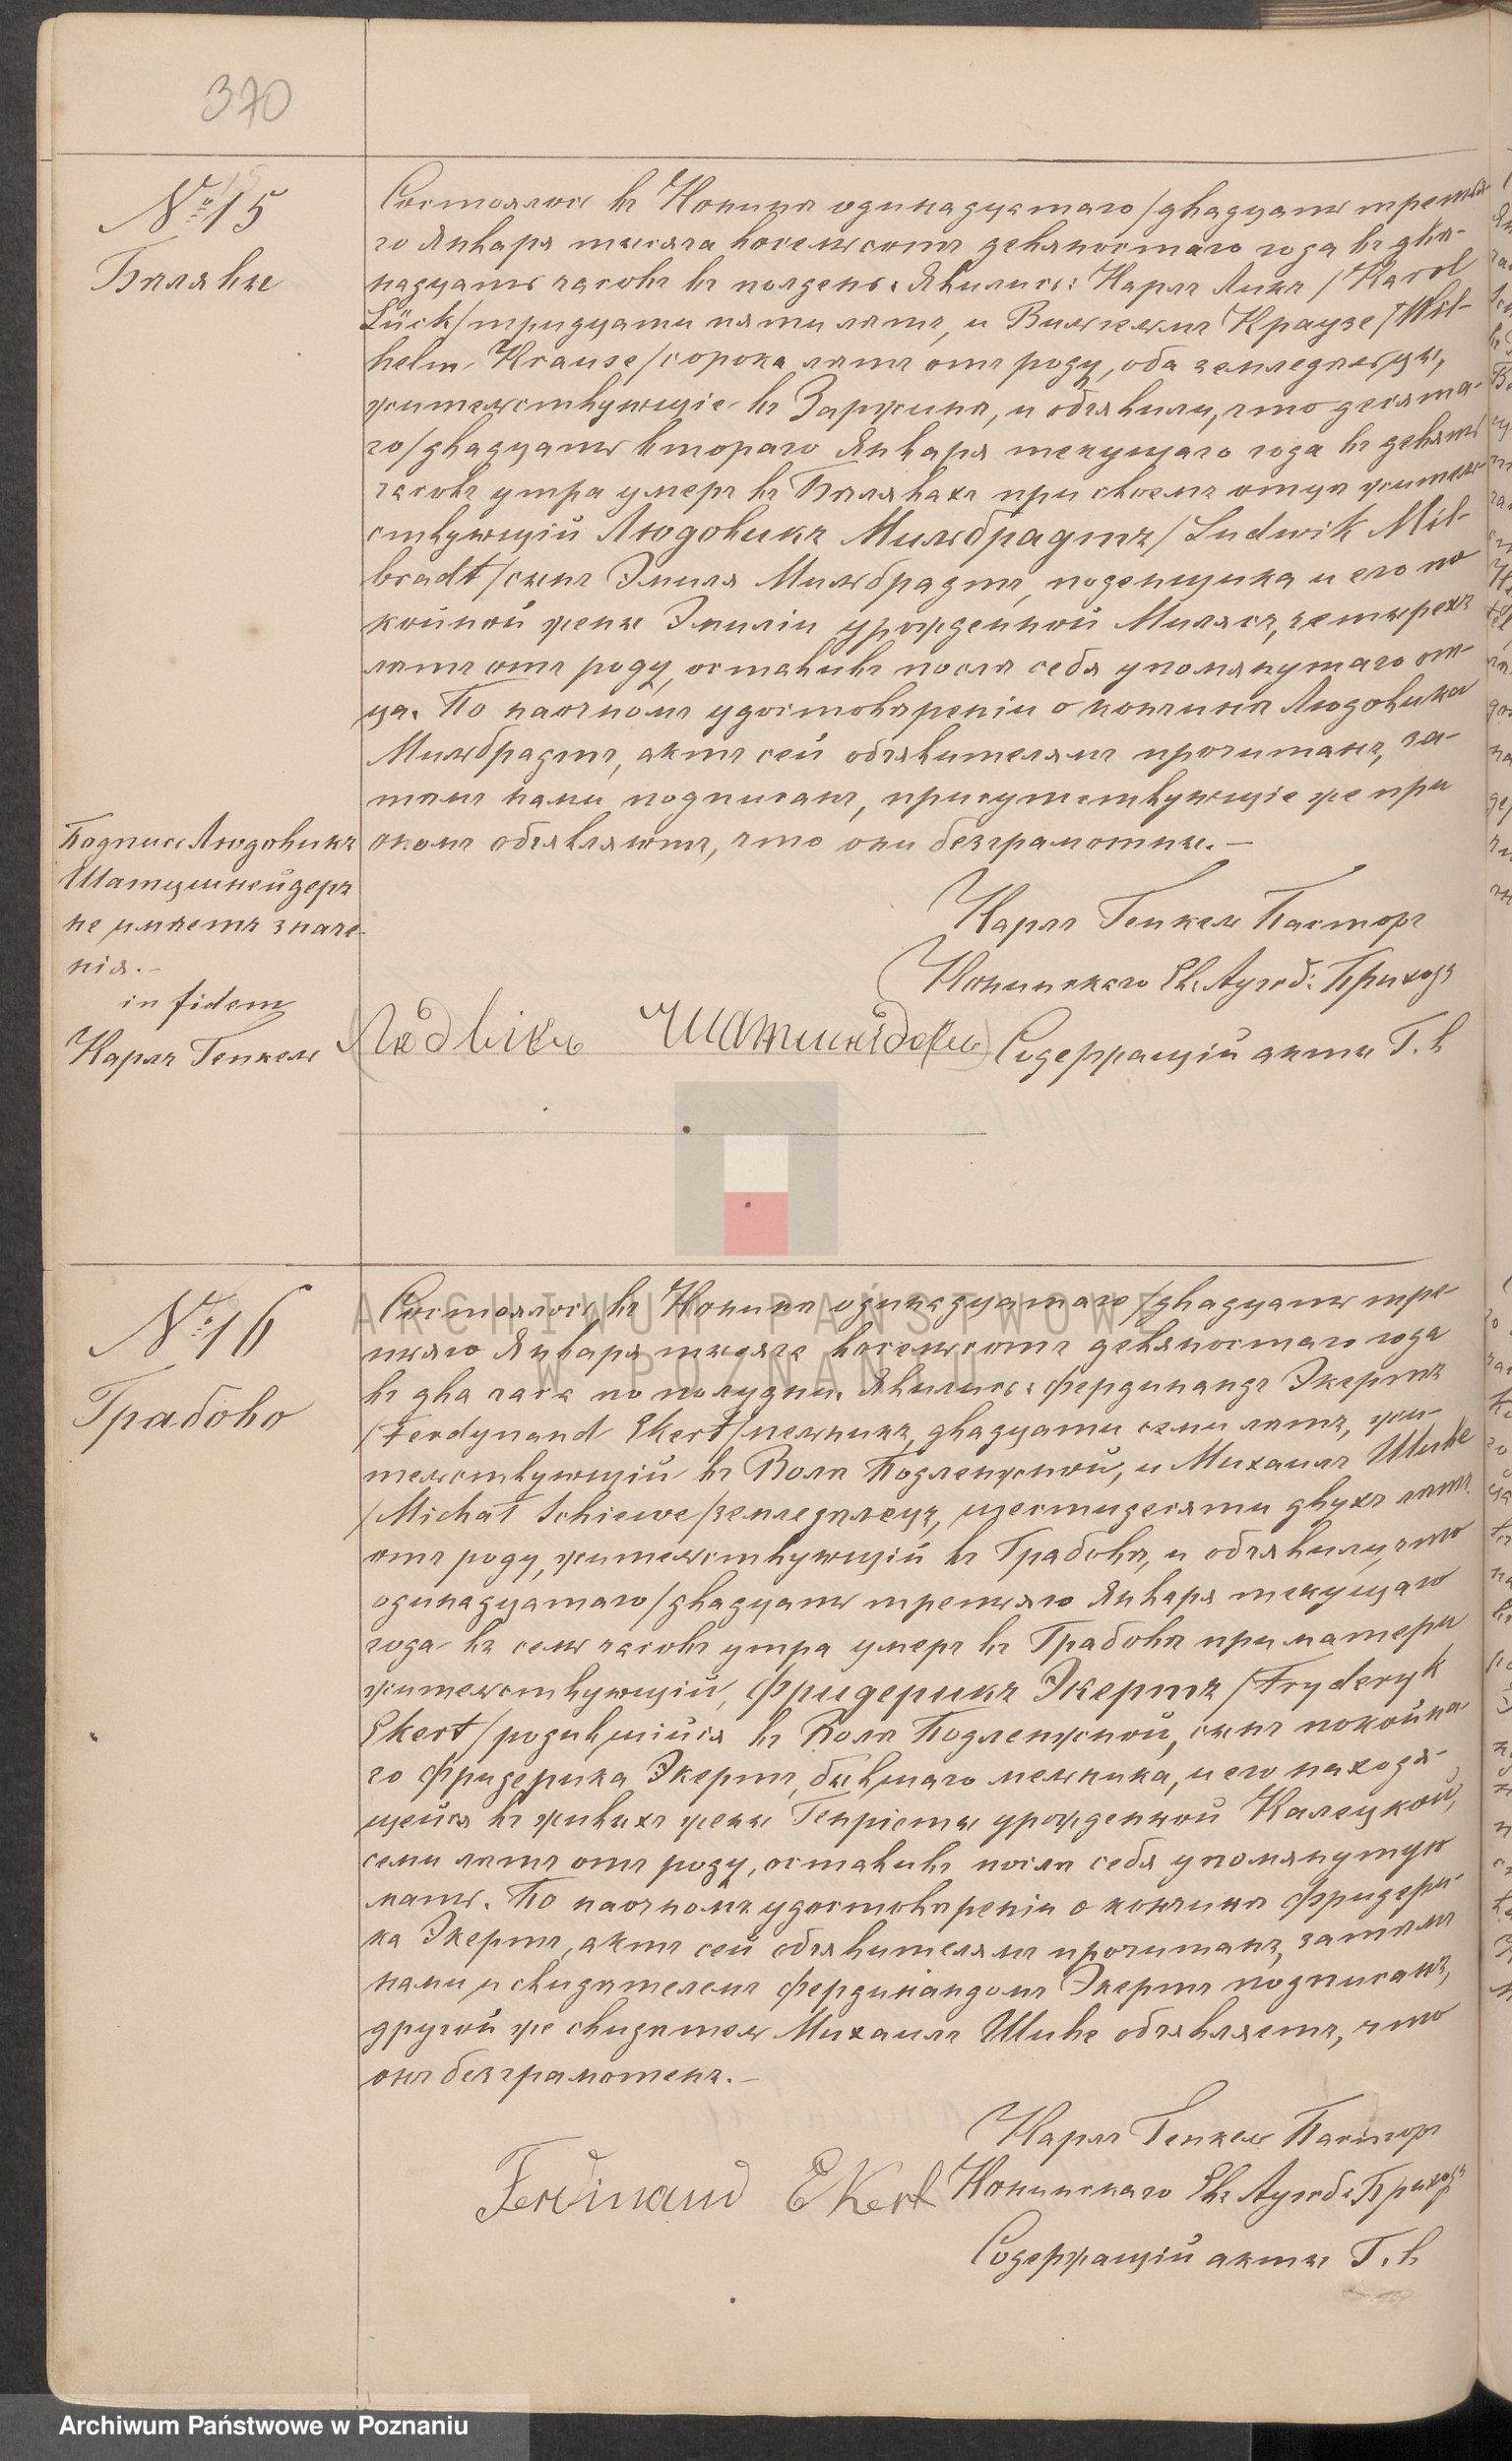 370
№ 15
Бѣлявы
Состоялось въ Конинѣ одинадцатаго/двадцать третья-
го Января тысяча восемьсотъ девяностаго года въ двѣ-
надцать часовъ въ полдень. Явились: КарлъЛикъ /Karol
Lück/ тридцати пяти лѣтъ, и Вильгельмъ Краузе /Wil-
helm Krause/ сорока лѣтъ отъ роду, оба земледѣльцы,
жительствующіе въ Заржинѣ, и объявили, что десята-
го/двадцать втораго Января текущаго года въ девять
часовъ утра умеръ въ Бѣлявахъ при своемъ отцѣ житель-
ствующій Людовикъ Мильбрадтъ /Ludwik Mil-
bradt/ сынъ Эмиля Мильбрадтъ, поденщика и его по
койной жены Эмиліи урожденной Милясъ, четырехъ
лѣтъ отъ роду, оставивъ послѣ себя упомянутаго от-
ца. По наочномъ удостовѣреніи о кончинѣ Людовика
Мильбрадтъ, актъ сей объявителямъ прочитанъ, за-
тѣмъ нами подписанъ, присутствующіе же при
ономъ объявляютъ, что они безграмотны. —
Подпись Людовикъ
Шатцшнейдеръ
не имѣетъ значе-
нія. –
in fidem
Карлъ Генкель
Карлъ Генкель Пасторъ
Конинскаго Ев. Аугсб: Прихода
Содержащій акты Г. С
№ 16
Грабово
Состоялось въ Конинѣ одинадцатаго/двадцать тре-
тьяго Января тысяча восемьсотъ девяностаго года
въ два часа по полудни. Явились: Фердинандъ Экертъ
/Ferdynand Ekert/ мельникъ, двадцати семи лѣтъ, жи-
тельствующій въ Волѣ Подленжной, и Михаилъ Шиве
/Michał Schiewe/ земледѣлецъ, шестидесяти двухъ лѣтъ
отъ роду, жительствующій въ Грабовѣ, и объявили, что
одинадцатаго/двадцать третьяго Января текущаго
года въ семь часовъ утра умеръ въ Грабовѣ при матери
жительствующій, Фридерикъ Экертъ /Fryderyk
Ekert/ родившійся въ Волѣ Подленжной, сынъ покойна-
го Фридерика Экертъ, бывшаго мельника, и его находя-
щейся въ живыхъ жены Генріеты урожденной Калецкой,
семи лѣтъ отъ роду, оставивъ послѣ себя упомянутую
мать. По наочномъ удостовѣреніи о кончинѣ Фридери-
ка Экертъ, актъ сей объявителямъ прочитанъ, затѣмъ
нами и свидѣтелемъ Фердинандомъ Экертъ подписанъ,
другой же свидѣтель Михаилъ Шиве объявляетъ, что
онъ безграмотенъ. –
Карлъ Генкель Пасторъ
Ferdinand Ekert Конинскаго Ев. Аугсб: Прихода
Содержащій акты Г. С
ARCHIWUM PAŃSTWOWE
W POZNANIU
Archiwum Państwowe w Poznaniu